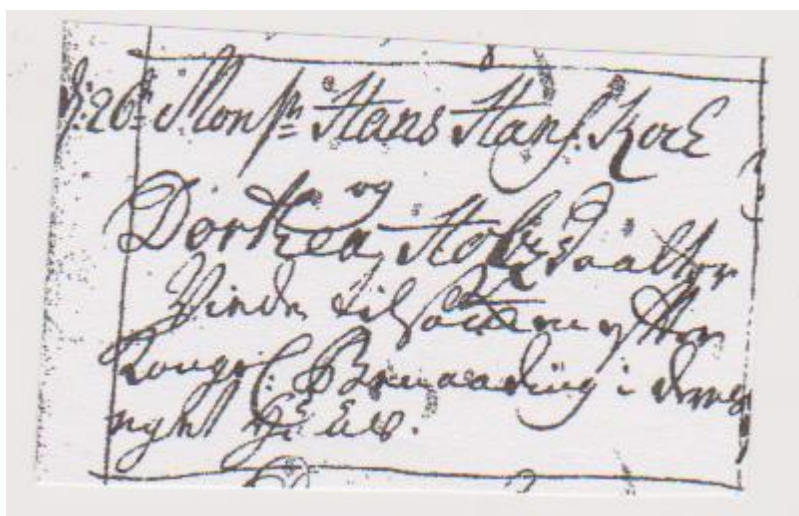 d: 26 Monsr Hans Hans. Koch
og
Dorthea Holgsdaatter
Viede til sammen efter
Kongel: Bevaading i deres
eget Huus.